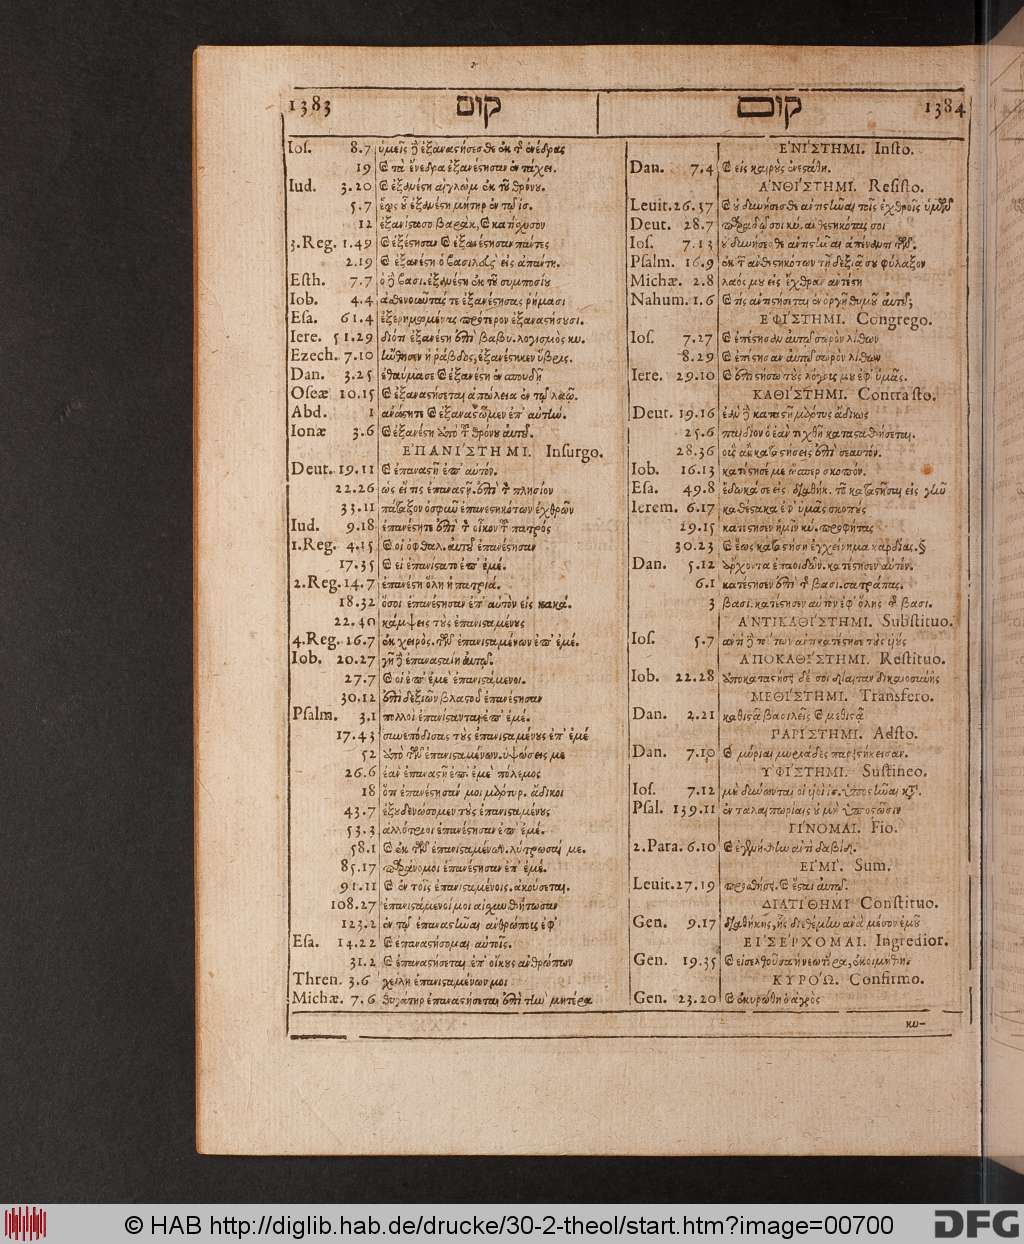 1383 קום
Ios. 8.7 ὑμεῖς ἢ ἐξαναςήσεσθε ἐκ τ̃ ἐνέδρας
19 ⳤ τὰ ἔνεδρα ἐξανέςησαν ἐν τάχει.
Iud. 3.20 ⳤ ἐξανέςη αἰγλὼμ ἐκ τοῦ θρόνου.
5.7 ἕως οὗ ἐξανέςη μήτηρ ἐν τῷ ἰσ.
12 ἐξανίςασο βαρὰκ,
3.Reg. 1.49 ⳤ ἐξέςησαν ⳤ ἐξανέςησαν πάντες
2.19 ⳤ ἐξανέςη ὁ βασιλεὺς εἰς ἀπάντη.
Esth. 7.7 ὁ ἢ βασι. ἐξανέςη ἐκ τοῦ συμποσίου
Iob. 4.4 ἀσθενοῦντάς τε ἐξανέςησας ῥήμασι
Esa. 61.4 ἐξερημωμένας πρότερον ἐξαναςήσουσι.
Iere. 51.29 διότι ἐξανέςη ἐπὶ βαβυ. λογισμὸς κυ.
Ezech. 7.10 ἡ ῥάβδος, ἐξανέςηκεν ὕβρις.
Dan. 3.25 ἐθαύμασε ⳤ ἐξανέςη ἐν σπουδῇ
Oseæ 10.15 ⳤ ἐξαναςήσεται ἀπώλεια ἐν τῷ λαῷ.
Abd. 1 ἀνάςητε ⳤ ἐξαναςῶμεν ἐπ' αὐτὴν.
Ionæ 3.6 ⳤ ἐξανέςη ἀπὸ τ̃ θρόνου αὐτοῦ.
ΕΠΑΝΙΣΤΗΜΙ. Insurgo.
Deut. 19.11 ⳤ ἐπαναςῇ ἐπ' αὐτόν.
22.26 ὡς εἴ τις ἐπαναςῇ. ἐπὶ τ̃ πλησίον
33.11 πάταξον ὀσφιὼ ἐπανεςηκότων ἐχθρῶν
Iud. 9.18 ἐπανέςητε ἐπὶ τ̃ οἶκον τ̃ πατρός
1.Reg. 4.15 ⳤ οἱ ὀφθαλ. αὐτοῦ ἐπανέςησαν
17.35 ⳤ εἰ ἐπανίςατο ἐπ' ἐμέ.
2.Reg. 14.7 ἐπανέςη ὅλη ἡ πατριά.
18.32 ὅσοι ἐπανέςησαν ἐπ' αὐτὸν εἰς κακά.
22.40 κάμψεις τοὺς ἐπανιςαμένους
4.Reg. 16.7 ἐκ χειρὸς. τῶν ἐπανιςαμένων ἐπ' ἐμέ.
Iob. 20.27 γῆ ἢ ἐπαναςαίη αὐτῷ.
27.7 ⳤ οἱ ἐπ' ἐμὲ ἐπανιςάμενοι.
30.12 ἐπὶ δεξιῶν βλαςοῦ ἐπανέςησαν
Psalm. 3.1 πολλοὶ ἐπανίςανται ἐπ' ἐμέ.
17.43 συνεπόδισας τοὺς ἐπανιςαμένους ἐπ' ἐμέ
52 ἀπὸ τῶν ἐπανιςαμένων. ὑψώσεις με
26.6 ἐὰν ἐπαναςῇ ἐπ' ἐμὲ πόλεμος
18 ὅτι ἐπανέςησαν μοι μάρτυρ. ἄδικοι
43.7 ἐξουδενώσομεν τοὺς ἐπανιςαμένους
53.3 ἀλλότριοι ἐπανέςησαν ἐπ' ἐμέ.
58.1 ⳤ ἐκ τῶν ἐπανιςαμένων. λύτρωσαι με.
85.17 παράνομοι ἐπανέςησαν ἐπ' ἐμέ.
91.11 ⳤ ἐν τοῖς ἐπανιςαμένοις. ἀκούσεται.
108.27 ἐπανιςάμενοί μοι αἰσχυνθήτωσαν
123.2 ἐν τῷ ἐπαναςῆναι ἀνθρώπους ἐφ'
Esa. 14.22 ⳤ ἐπαναςήσομαι αὐτοῖς.
31.2 ⳤ ἐπαναςήσεται ἐπ' οἴκους ἀνθρώπων
Thren. 3.6 χείλη ἐπανιςαμένων μοι
Michæ. 7.6 θυγάτηρ ἐπαναςήσεται ἐπὶ τὴν μητέρα
קום 1384
ΕΝΙΣΤΗΜΙ. Insto.
Dan. 7.4 ⳤ εἰς καιροὺς ἐνεςάθη.
ΑΝΘΙΣΤΗΜΙ. Resisto.
Leuit. 26.37 ⳤ οὐ δυνήσεσθε ἀντιςῆναι τοῖς ἐχθροῖς ὑμῶν
Deut. 28.7 παραδῴσοι κύ. ἀνθεςηκότας σοι
Ios. 7.13 οὐ δυνήσεσθε ἀντιςῆναι ἀπέναντι τῶν.
Psalm. 16.9 ἐκ τ̃ ἀνθεςηκότων τῇ δεξιᾷ σου φύλαξον
Michæ. 2.8 λαός μου εἰς ἔχθραν ἀντέςη
Nahum. 1.6 ⳤ τίς ἀντιςήσεται ἐν ὀργῇ θυμοῦ αὐτοῦ;
ΕΦΙΣΤΗΜΙ. Congrego.
Ios. 7.27 ⳤ ἐπέςησαν αὐτῷ σωρὸν λίθων
8.29 ⳤ ἐπέςησαν αὐτῷ σωρὸν λίθων
Iere. 29.10 ⳤ ἐπιςήσω τοὺς λόγους μου ἐφ' ὑμᾶς.
ΚΑΘΙΣΤΗΜΙ. Contrasto.
Deut. 19.16 ἐὰν ἢ καταςῇ μάρτυς ἄδικος
25.6 παιδίον ὃ ἐὰν τεχθῇ καταςαθήσεται.
28.36 οὓς ἂν καταςήσεις ἐπὶ σεαυτόν.
Iob. 16.13 κατέςησέ με ὥσπερ σκοπόν.
Esa. 49.8 ἔδωκά σε εἰς διαθήκ. τοῦ καταςῆσαι εἰς γῆν
Ierem. 6.17 καθέςακα ἐφ' ὑμᾶς σκοπούς
29.15 κατέςησεν ἡμῖν κύ. προφήτας
30.23 ⳤ ἕως καταςήσῃ ἐγχείρημα καρδίας. §
Dan. 5.12 ἄρχοντα ἐπαοιδῶν. κατέςησεν αὐτόν.
6.1 κατέςησεν ἐπὶ τ̃ βασι. σατράπας.
3 βασι. κατέςησεν αὐτὸν ἐφ' ὅλης τ̃ βασι.
ΑΝΤΙΚΑΘΙΣΤΗΜΙ. Substituo.
Ios. 5.7 ἀντὶ ἢ τούτων ἀντικατέςησε τοὺς υἱούς
ΑΠΟΚΑΘΙΣΤΗΜΙ. Restituo.
Iob. 22.28 ἀποκαταςήσῃ δέ σοι δίαιταν δικαιοσύνης
ΜΕΘΙΣΤΗΜΙ. Transfero.
Dan. 2.21 καθιςᾷ βασιλεῖς ⳤ μεθιςᾷ
ΠΑΡΙΣΤΗΜΙ. Adsto.
Dan. 7.10 ⳤ μύριαι μυριάδες παρεςήκεισαν.
ΥΦΙΣΤΗΜΙ. Sustineo.
Ios. 7.12 μὲ δύνωνται οἱ υἱοὶ ἰσ. ὑποςῆναι κτ̃.
Psal. 139.11 ἐν ταλαιπωρίαις οὐ μὴ ὑποςῶσιν
ΓΙΝΟΜΑΙ. Fio.
2.Para. 6.10 ⳤ ἐγενήθην ἀντὶ δαβίδ.
ΕΙΜΙ. Sum.
Leuit. 27.19 προσθήσει. ⳤ ἔςαι αὐτῷ.
ΔΙΑΤΙΘΗΜΙ Constituo.
Gen. 9.17 διαθήκης, ἧς διεθέμην ἀνὰ μέσον ἐμοῦ
ΕΙΣΕΡΧΟΜΑΙ. Ingredior.
Gen. 19.35 ⳤ εἰσελθοῦσα ἡ νεωτέρα, ἐκοιμήθη
ΚΥΡΟΩ. Confirmo.
Gen. 23.20 ⳤ ἐκυρώθη ὁ ἀγρὸς
κυ-
© HAB http://diglib.hab.de/drucke/30-2-theol/start.htm?image=00700
DFG